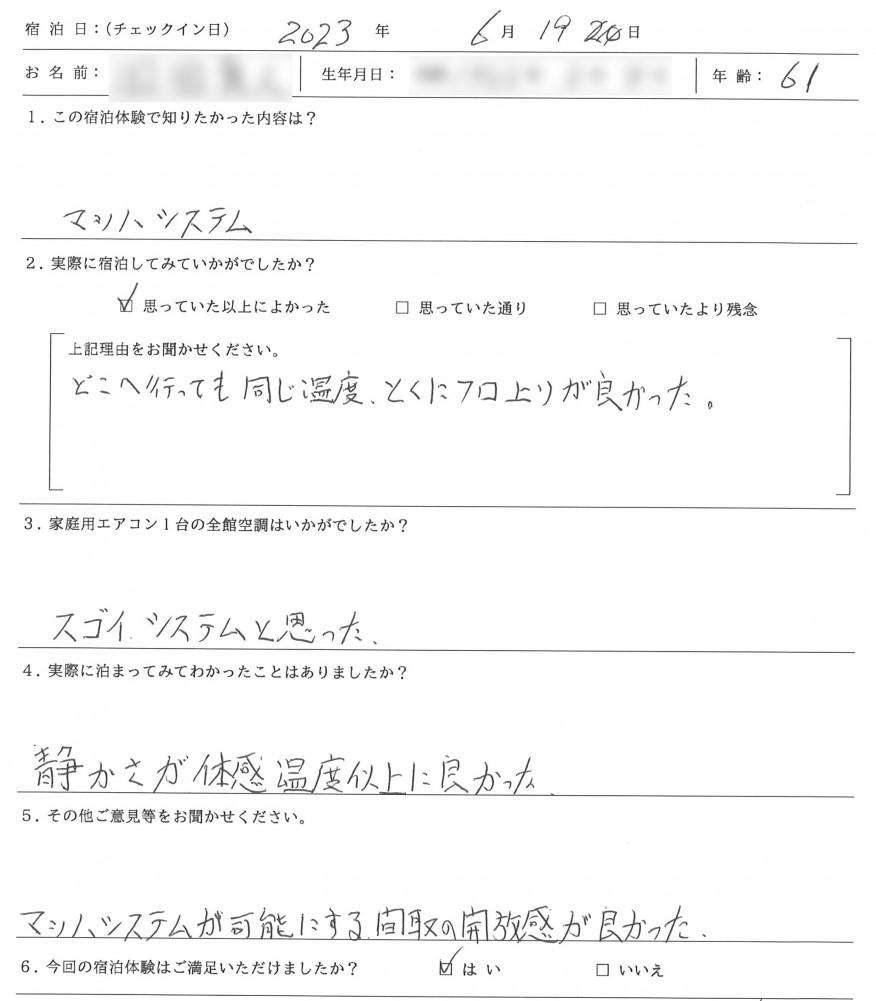 宿 泊 日：(チェックイン日) 2023 年 6 月 19 20 日
お 名 前： 生年月日： 年 齢： 61
1．この宿泊体験で知りたかった内容は？
マッハシステム
2．実際に宿泊してみていかがでしたか？
☑ 思っていた以上によかった □ 思っていた通り □ 思っていたより残念
上記理由をお聞かせください。
どこへ行っても同じ温度、とくにフロ上りが良かった。
3．家庭用エアコン1台の全館空調はいかがでしたか？
スゴイ、システムと思った、
4．実際に泊まってみてわかったことはありましたか？
静かさが体感温度以上に良かった、
5．その他ご意見等をお聞かせください。
マッハシステムが可能にする、間取の開放感が良かった、
6．今回の宿泊体験はご満足いただけましたか？ ☑ は い □ いいえ